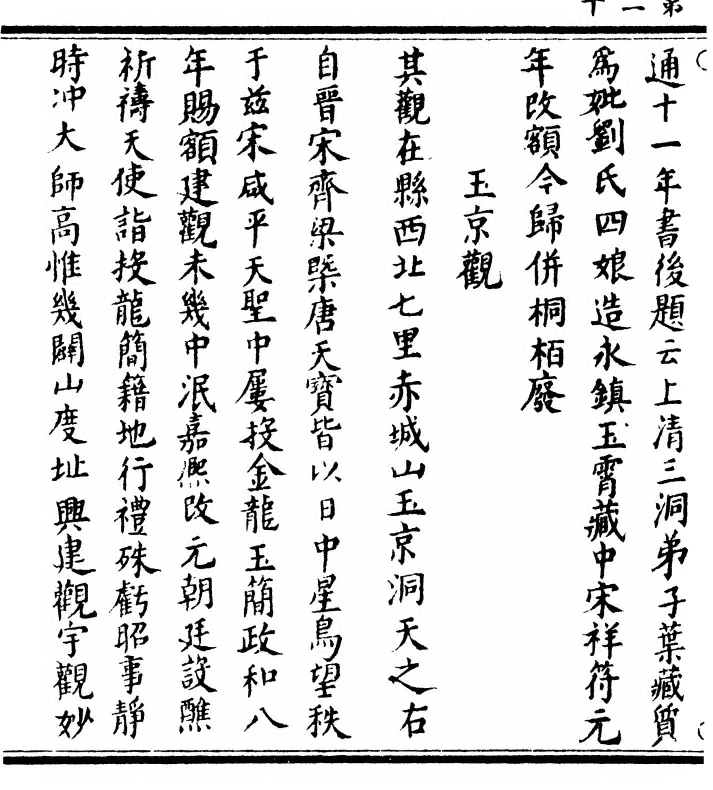 第二十
通十一年書後題云上清三洞弟子葉藏質
爲妣劉氏四娘造永鎮玉霄藏中宋祥符元
年改額今歸併桐柏廢
玉京觀
其觀在縣西北七里赤城山玉京洞天之右
自晉宋齊梁曁唐天寶皆以日中星鳥望秩
于茲宋咸平天聖中屢投金龍玉簡政和八
年賜額建觀未幾中泯嘉熙改元朝廷設醮
祈禱天使詣投龍簡籍地行禮殊虧昭事靜
時冲大師高惟幾闢山度址興建觀宇觀妙